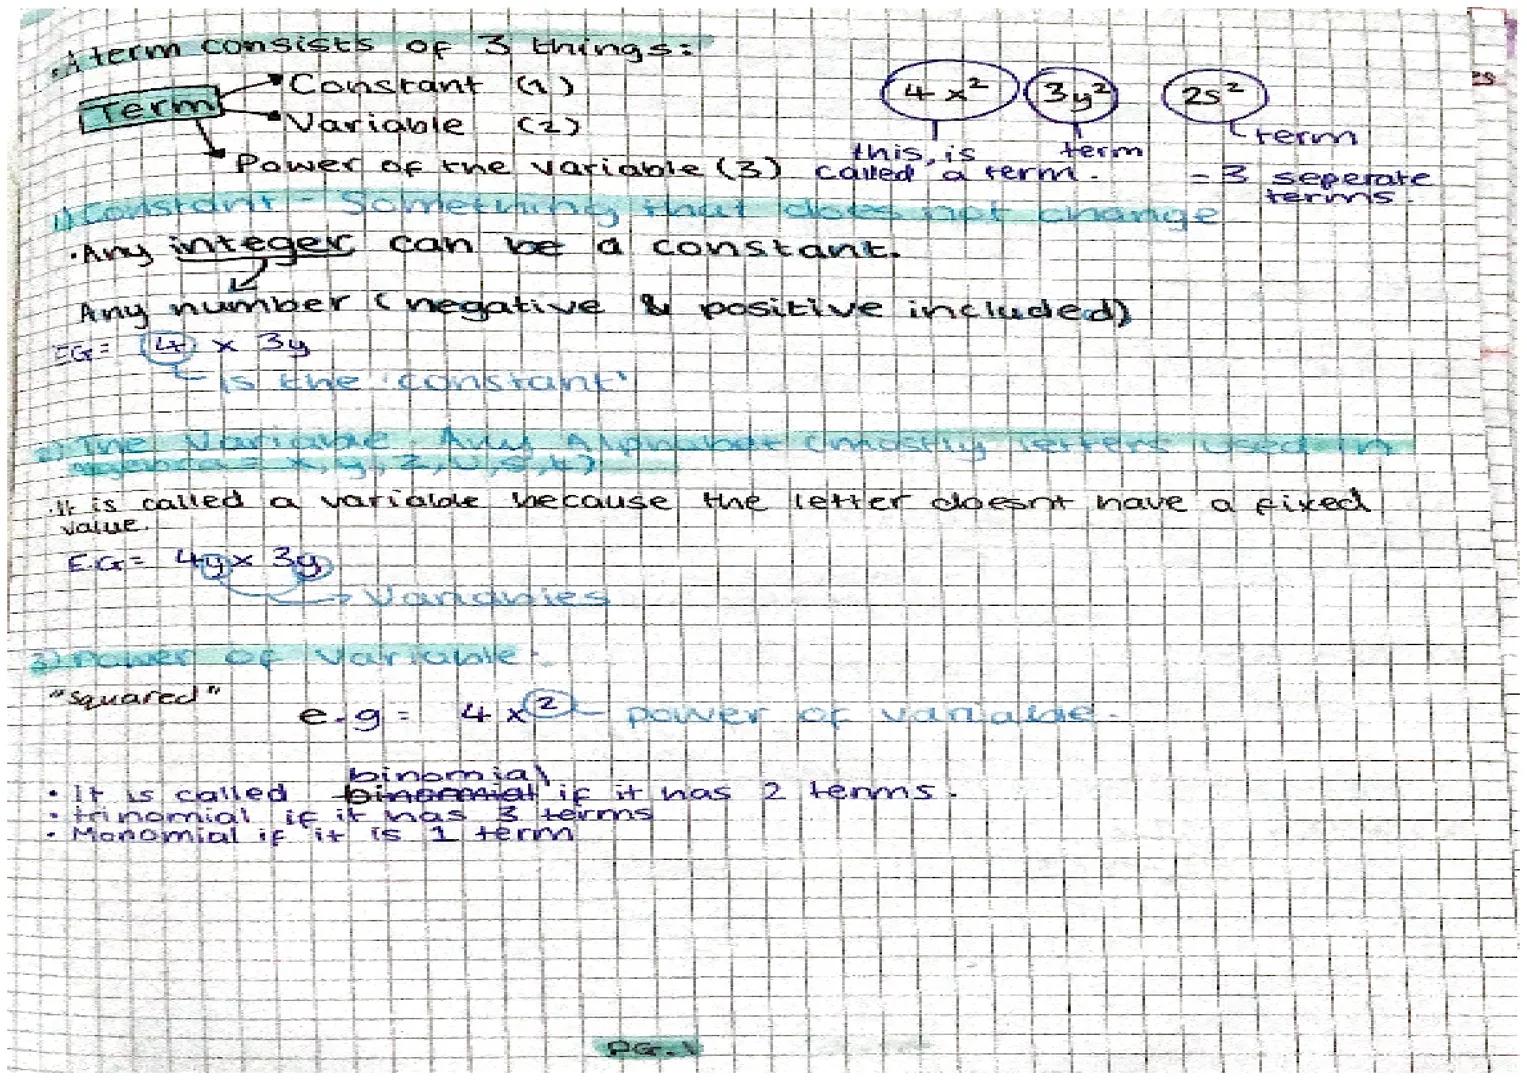 • A term consists of 3 things:
Term
Constant (1)
Variable (2)
Power of the variable (3)
4x² 3y² 2s²
this is called a term.
term
term
= 3 seperate terms.
1) Constant - Something that does not change
• Any integer can be a constant.
Any number (negative & positive included)
EG = 4 x 3y
is the constant
2) The Variable. Any Alphabet (mostly letters used in
algebra = x, y, z,
• It is called a variable because the letter doesnt have a fixed
value.
E.G = 4y x 3y
Variables
3) Power of Variable:
"squared"
e.g = 4x² power of variable.
binomial
• It is called binomial if it has 2 terms.
• trinomial if it has 3 terms
• Monomial if it is 1 term
PG.1